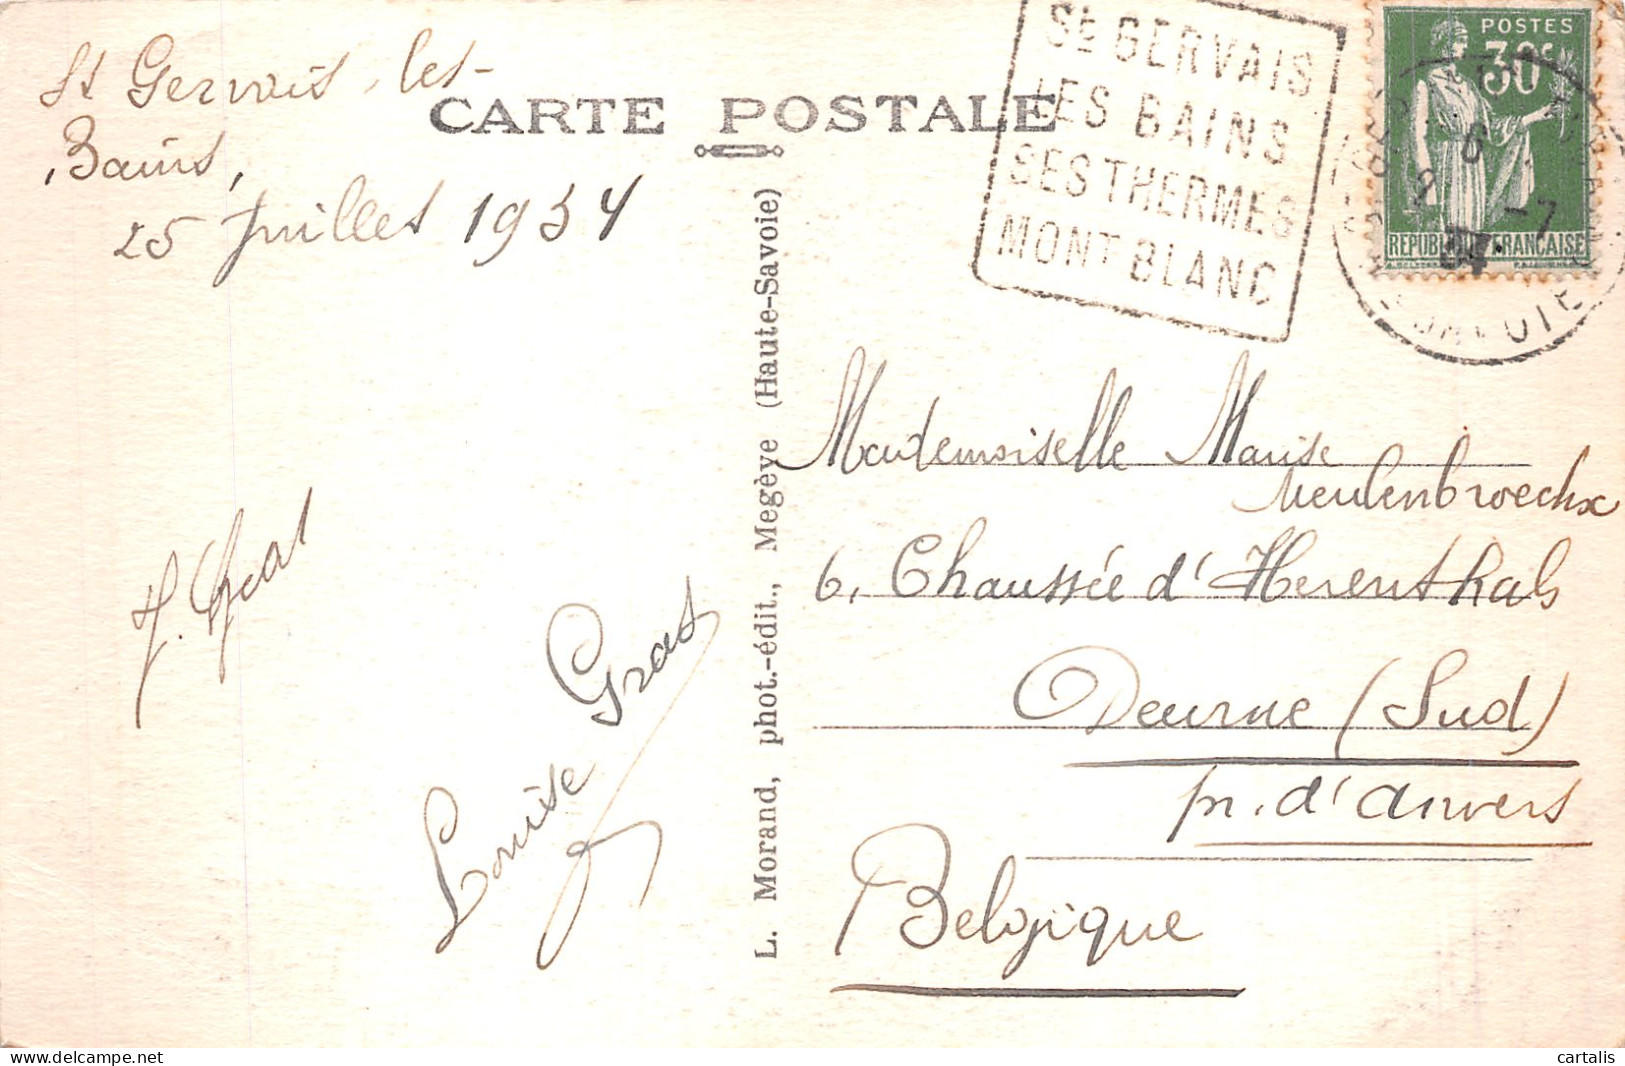 St Gervais-les-
Bains,
25 Juillet 1934
CARTE POSTALE
St GERVAIS
LES BAINS
SES THERMES
MONT BLANC
POSTES
30c
REPUBLIQUE FRANCAISE
L. Morand, phot.-édit., Megève (Haute-Savoie)
Mademoiselle Marise
Meulenbroeckx
6, Chaussée d'Herenthals
Deurne (Sud)
pr. d'Anvers
Belgique
Louise Grat
cartalis